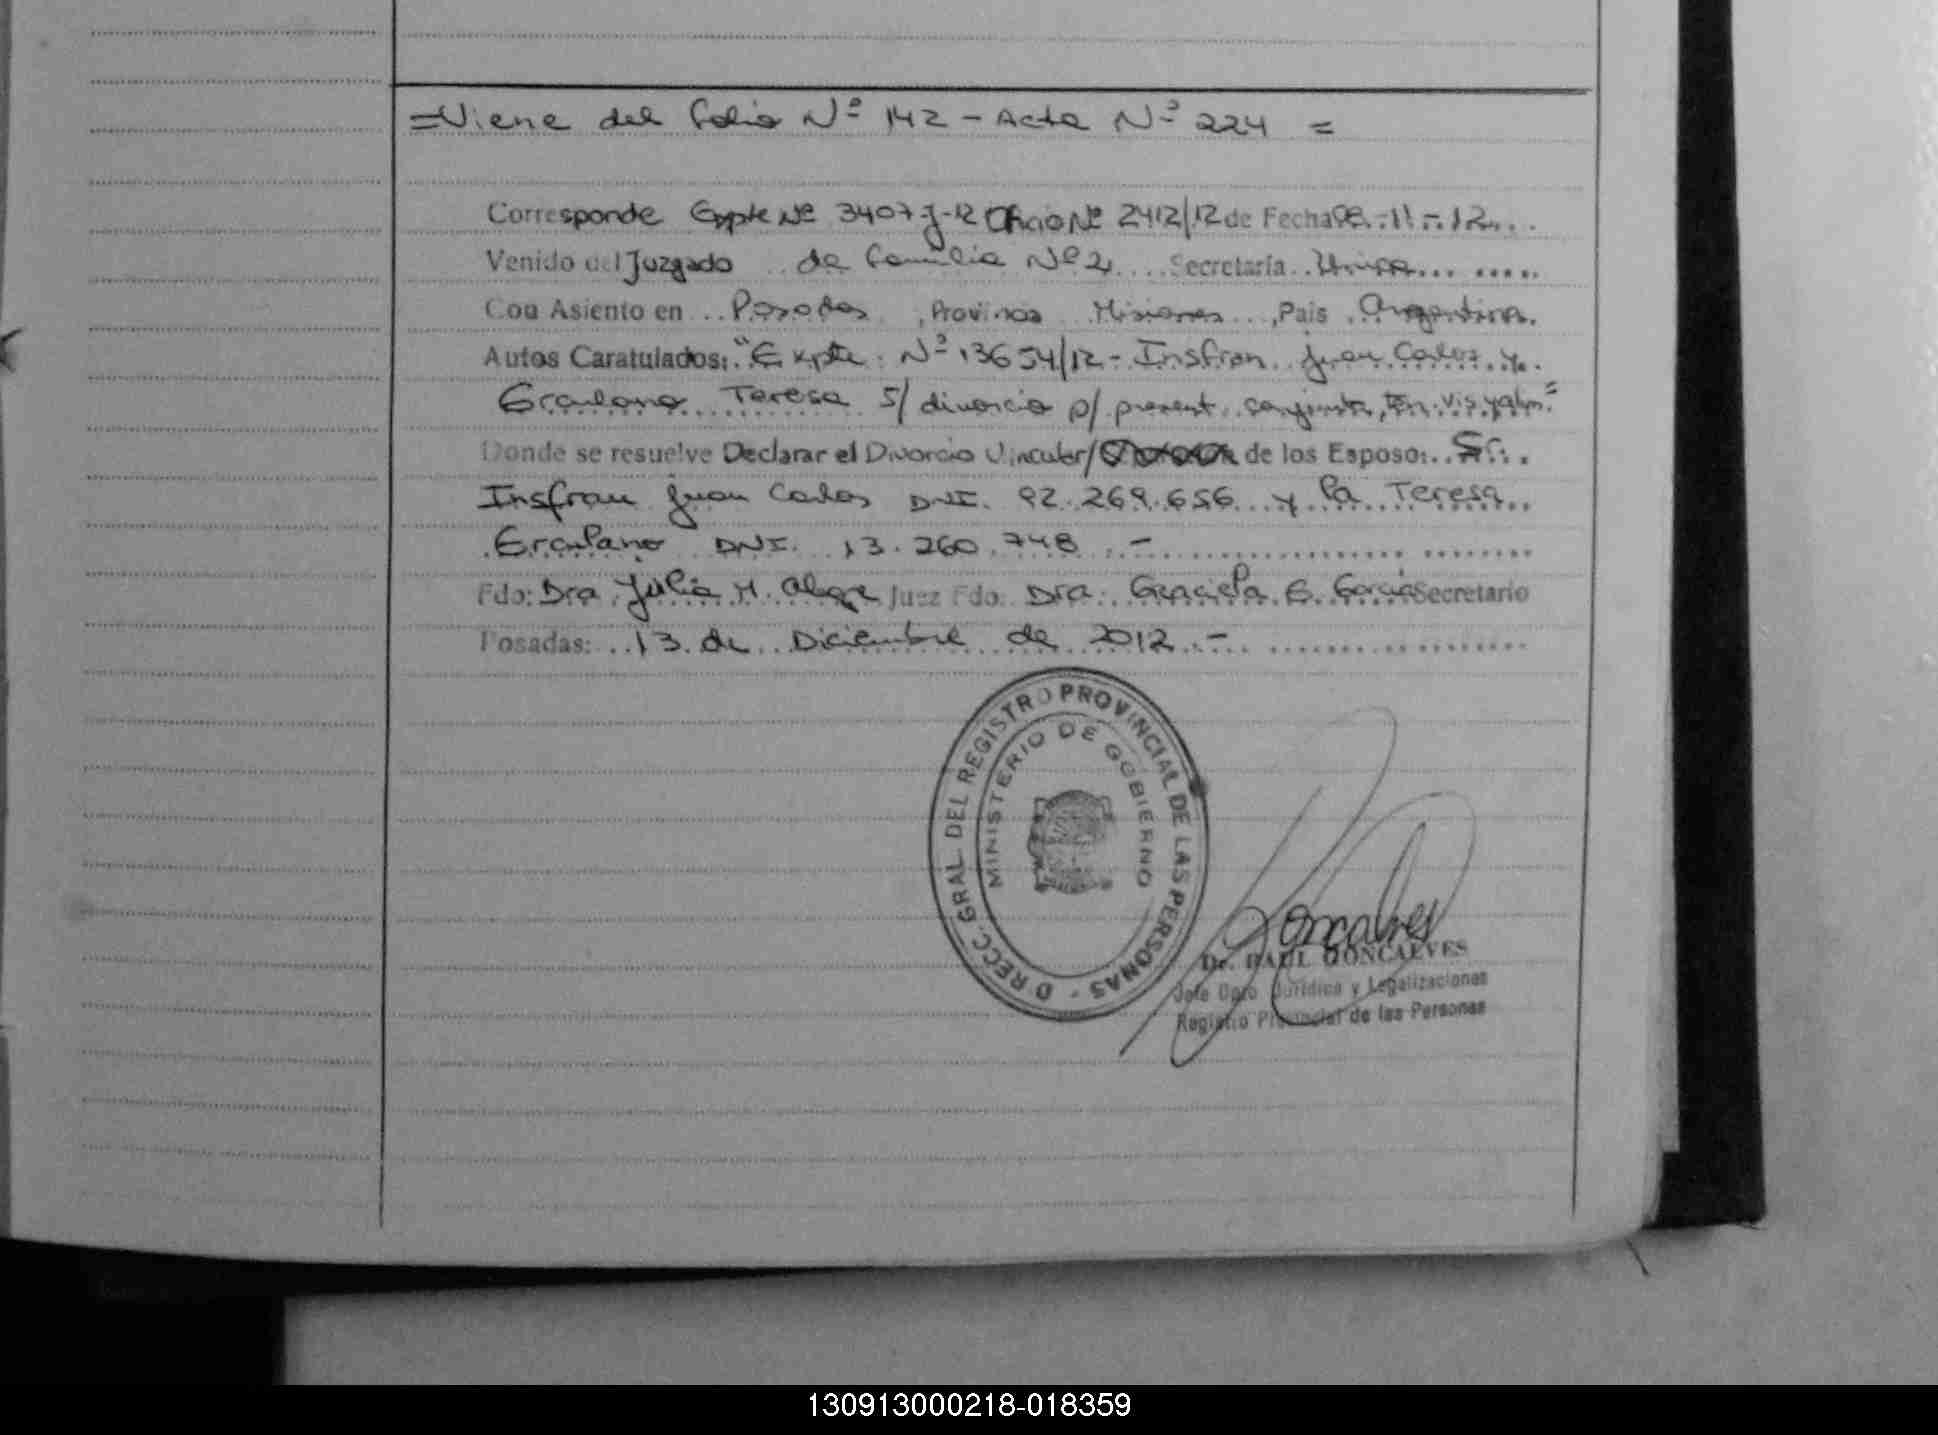 =Viene del folio Nº 142 - Acta Nº 224 =
Corresponde Expte Nº 3407-J-12 Oficio Nº 2412/12 de Fecha 08.-11-.12...
Venido del Juzgado de Familia Nº 2 Secretaría Unica
Con Asiento en Posadas, Provincia Misiones, Pais Argentina.
Autos Caratulados: "Expte. Nº 13654/12 - Insfran Juan Carlos y
Erculano Teresa S/ divorcio p/ present. conjunta
Donde se resuelve Declarar el Divorcio Vincular/ de los Esposo: Sr.
Insfran Juan Carlos DNI. 92.269.656 y la Teresa
Erculano DNI. 13.260.748 .-
Fdo: Dra. Julia M. Juez Fdo. Dra. Graciela E. Garcia Secretario
Posadas: 13 de Diciembre de 2012.-
DIRECC. GRAL. DEL REGISTRO PROVINCIAL DE LAS PERSONAS
MINISTERIO DE GOBIERNO
Goncalves
Dr. RAUL GONCALVES
Jefe Dpto. Jurídica y Legalizaciones
Registro Provincial de las Personas
130913000218-018359